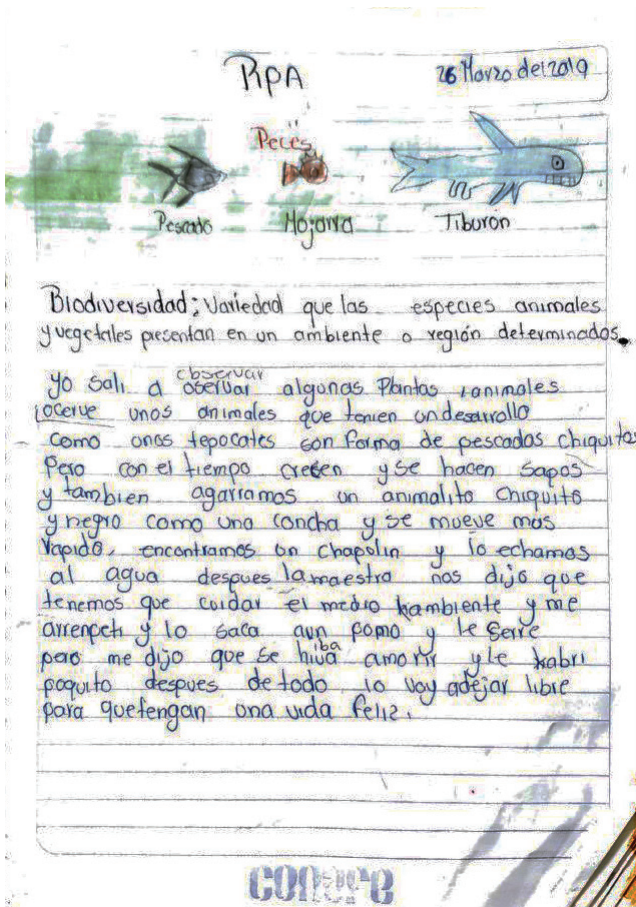 RPA
26 Marzo del 2019
Peces
Pescado
Mojarra
Tiburon
Biodiversidad: Variedad que las especies animales
y vegetales presentan en un ambiente o región determinados.
observar
yo sali a oservar algunas Plantas ianimales
iocerve unos animales que tenien undesarrollo
como unos tepocates son forma de pescados chiquitos
Pero con el tiempo crecen y se hacen sapos
y tambien agarramos un animalito chiquito
y negro como una concha y se mueve mas
rapido. encontramos un chapolin y lo echamos
al agua despues lamaestra nos dijo que
tenemos que cuidar el medio hambiente y me
arrenpeti y lo saca aun pomo y le serre
iba
pero me dijo que se hiva amorir y le habri
poquito despues de todo lo voy adejar libre
para quetengan una vida feliz.